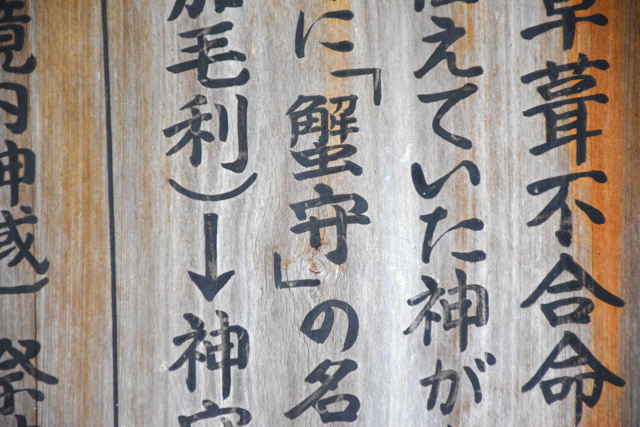 草葺不合命
えていた神が
に「蟹守」の名
加毛利)→神守
境内神域) 祭